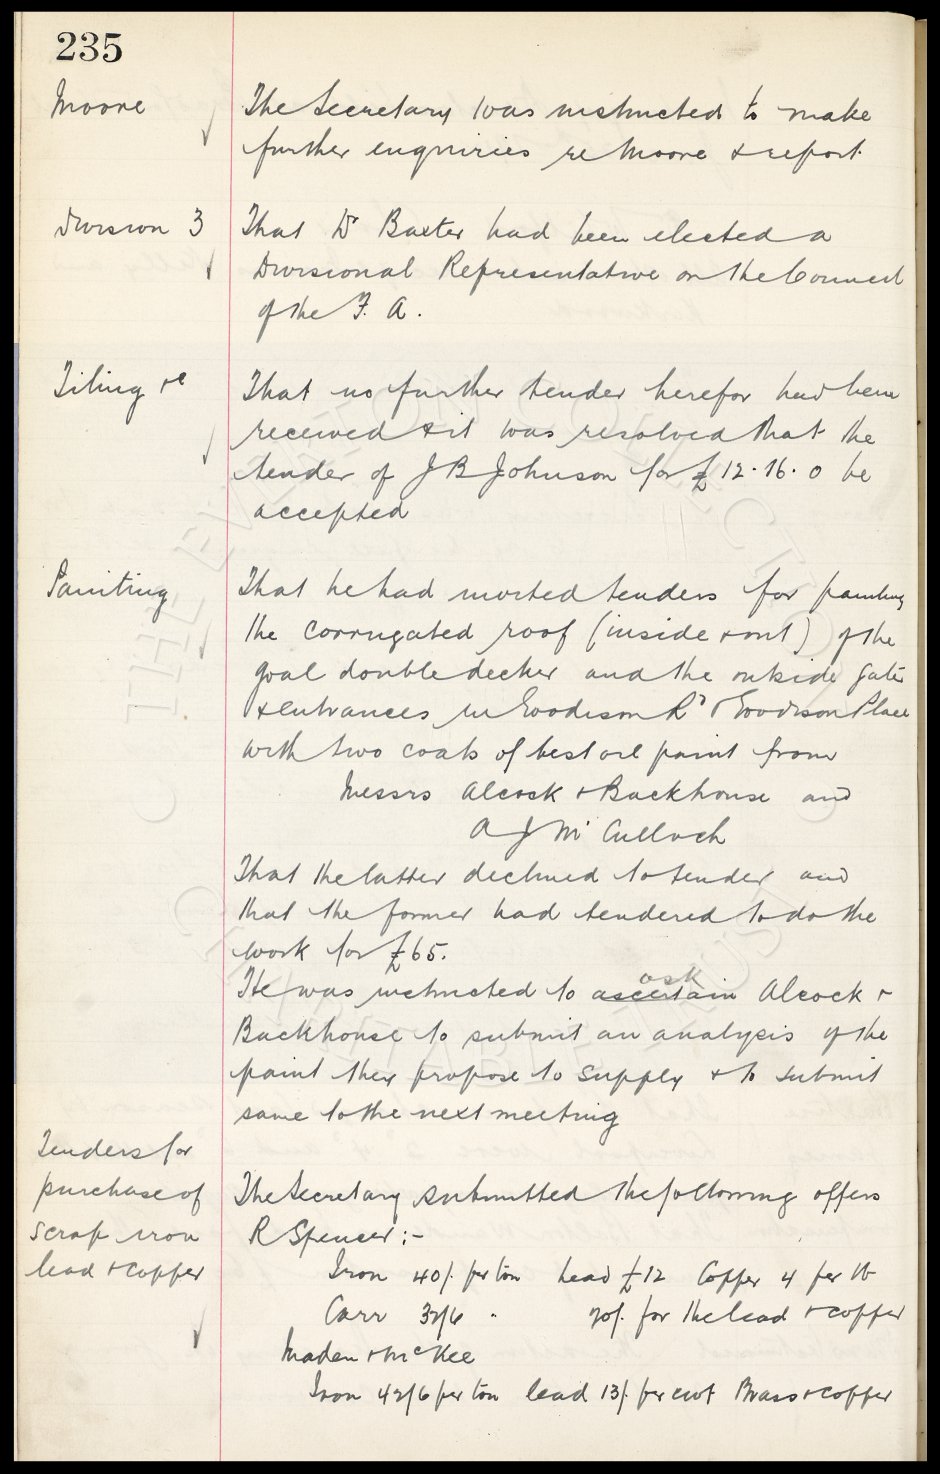 235
Moore
The Secretary was instructed to make
further enquiries re Moore & report.
Division 3
That Dr Baxter had been elected a
Divisional Representative on the Council
of the F. A.
Tiling re
That no further tender herefor had been
received & it was resolved that the
tender of J B Johnson for £12.16.0 be
accepted
Painting
That he had invited tenders for painting
the corrugated roof (inside & out) of the
goal double decker and the outside gates
& entrances in Goodison Rd & Goodison Place
with two coats of best oil paint from
Messrs Alcock & Backhouse and
A J Mc Culloch
That the latter declined to tender and
that the former had tendered to do the
work for £65.
He was instructed to ascertain ask Alcock &
Backhouse to submit an analysis of the
paint they propose to supply & to submit
same to the next meeting
Tenders for
purchase of
scrap iron
lead & copper
The Secretary submitted the following offers
R Spencer :-
Iron 40/. per ton lead £12 Copper 4 per lb
Carr 32/6 " 70/. for the lead & copper
Maden & McKee
Iron 42/6 per ton lead 13/. per cwt Brass & copper